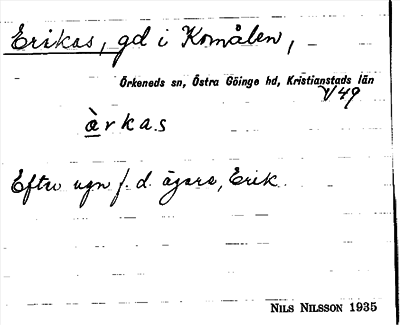 Erikas, gd i Komålen,
Örkeneds sn, Östra Göinge hd, Kristianstads län
V49
àrkas
Efter ngn f. d. ägare, Erik.
NILS NILSSON 1935